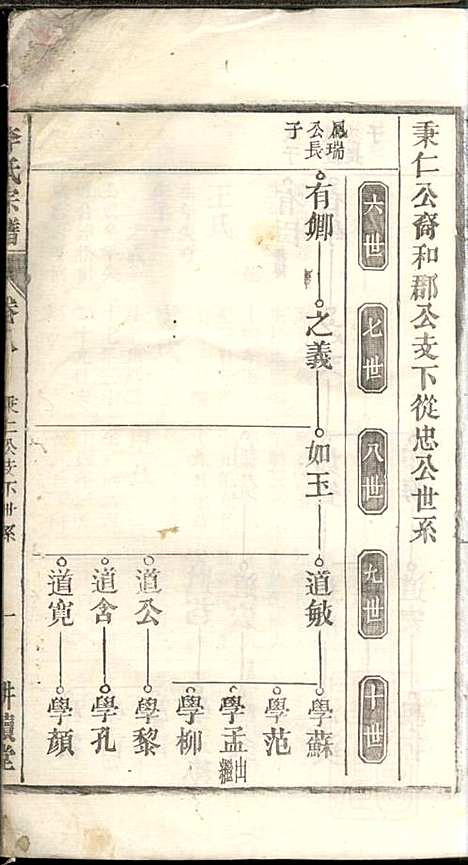 秉仁公裔和郡公支下從忠公世系
六世
七世
八世
九世
十世
鳳瑞公長子
有卿
之義
如玉
道敏
學蘇
學范
學孟出繼
學柳
道公
學黎
道含
學孔
道寬
學顏
李氏宗譜
秉仁公支下世系
一